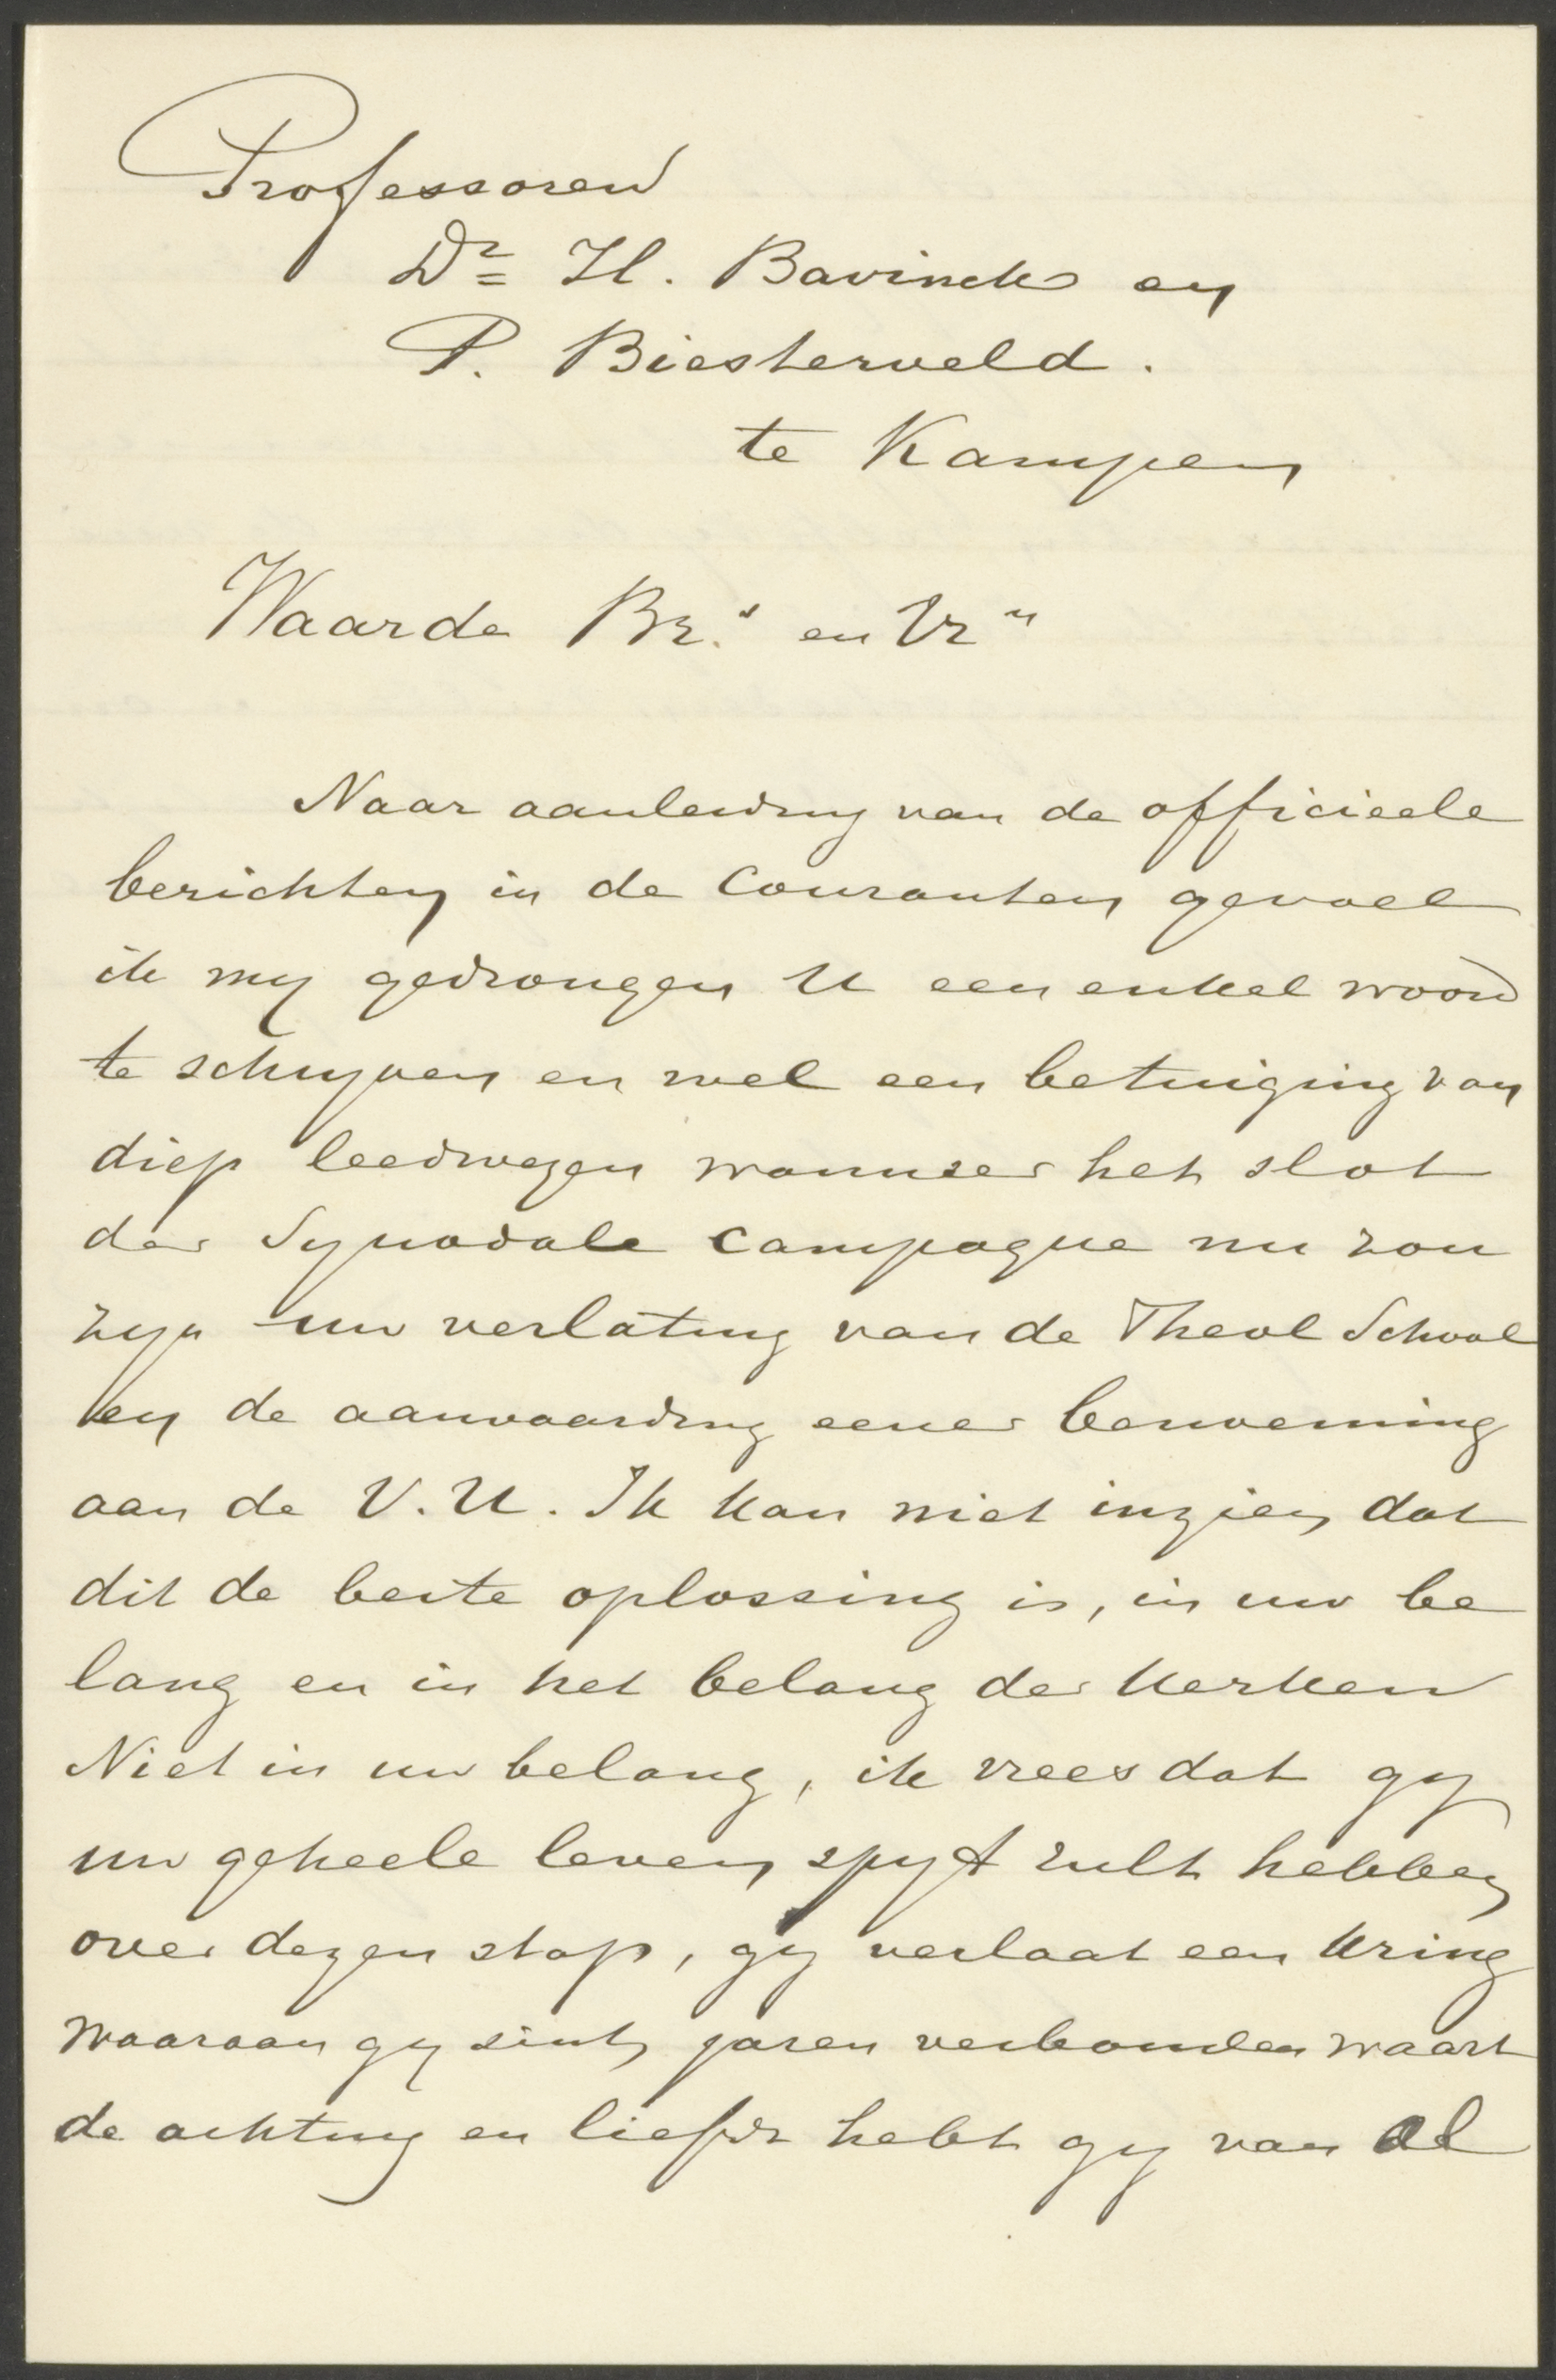 Professoren
Dr H. Bavinck en
P. Biesterveld.
te Kampen
Waarde Brs en Vrn
Naar aanleiding van de officieele
berichten in de Couranten gevoel
ik my gedrongen U een enkel woord
te schryven en wel een betuiging van
diep leedwezen wanneer het slot
der Synodale Campagne nu zou
zyn uw verlating van de Theol School
en de aanvaarding eener benoeming
aan de V.U. Ik kan niet inzien dat
dit de beste oplossing is, in uw be
lang en in het belang der Kerken
Niet in uw belang, ik vrees dat gy
uw geheele leven spyt zult hebben
over dezen stap, gy verlaat een Kring
waaraan gy sints jaren verbonden waart
de achting en liefde hebt gy van al